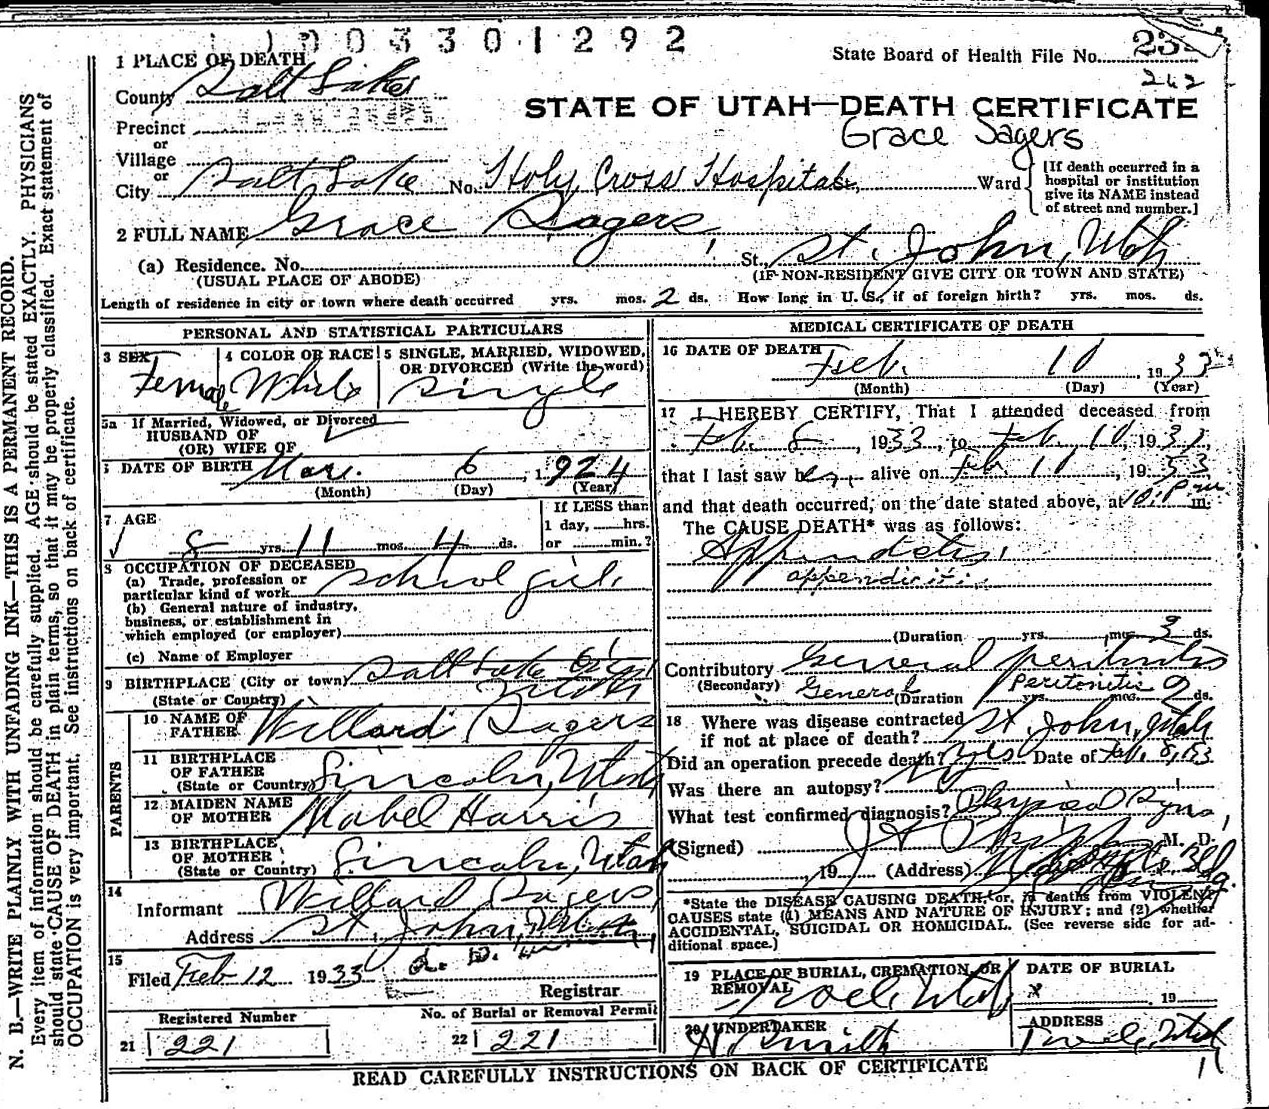 1003301292
State Board of Health File No. 23
242
1 PLACE OF DEATH
County Salt Lake
STATE OF UTAH—DEATH CERTIFICATE
Precinct
Grace Sagers
or
Village
or
City Salt Lake No. Holy Cross Hospital, Ward
[If death occurred in a hospital or institution give its NAME instead of street and number.]
2 FULL NAME Grace Sagers,
(a) Residence. No. St., St. John, Utah
(USUAL PLACE OF ABODE) (IF NON-RESIDENT GIVE CITY OR TOWN AND STATE)
Length of residence in city or town where death occurred yrs. mos. 2 ds. How long in U. S., if of foreign birth? yrs. mos. ds.
PERSONAL AND STATISTICAL PARTICULARS
3 SEX 4 COLOR OR RACE 5 SINGLE, MARRIED, WIDOWED, OR DIVORCED (Write the word)
Female White Single
5a If Married, Widowed, or Divorced
HUSBAND OF
(OR) WIFE OF
6 DATE OF BIRTH Mar. 6 1924
(Month) (Day) (Year)
7 AGE If LESS than
1 day, hrs.
8 yrs. 11 mos. 4 ds. or min.?
8 OCCUPATION OF DECEASED
(a) Trade, profession or
particular kind of work School girl.
(b) General nature of industry,
business, or establishment in
which employed (or employer)
(c) Name of Employer
9 BIRTHPLACE (City or town) Salt Lake City
(State or Country) Utah
PARENTS
10 NAME OF
FATHER Willard Sagers
11 BIRTHPLACE
OF FATHER
(State or Country) Lincoln, Utah
12 MAIDEN NAME
OF MOTHER Mabel Harris
13 BIRTHPLACE
OF MOTHER
(State or Country) Lincoln, Utah
14
Informant Willard Sagers
Address St. John, Utah
15
Filed Feb 12 1933
Registrar
Registered Number No. of Burial or Removal Permit
21 221 22 221
MEDICAL CERTIFICATE OF DEATH
16 DATE OF DEATH Feb. 10 1933
(Month) (Day) (Year)
17 I HEREBY CERTIFY, That I attended deceased from
Feb. 8, 1933, to Feb. 10, 1933,
that I last saw her alive on Feb 10, 1933
and that death occurred, on the date stated above, at 10:P m m.
The CAUSE DEATH* was as follows:
Appendictis.
appendicitis
(Duration yrs. mos. 3 ds.
Contributory General peritonitis
(Secondary) General Peritonitis
(Duration yrs. mos. 2 ds.
18 Where was disease contracted
if not at place of death? St. John, Utah
Did an operation precede death? Yes Date of Feb. 8,
Was there an autopsy?
What test confirmed diagnosis? Physical Signs,
(Signed) M. D.
, 19 (Address) Bldg.
*State the DISEASE CAUSING DEATH, or, in deaths from VIOLENT
CAUSES state (1) MEANS AND NATURE OF INJURY; and (2) whether
ACCIDENTAL, SUICIDAL OR HOMICIDAL. (See reverse side for additional space.)
19 PLACE OF BURIAL, CREMATION, OR REMOVAL DATE OF BURIAL
Tooele Utah x , 19
20 UNDERTAKER ADDRESS
Smith Tooele, Utah
READ CAREFULLY INSTRUCTIONS ON BACK OF CERTIFICATE
N. B.—WRITE PLAINLY WITH UNFADING INK—THIS IS A PERMANENT RECORD.
Every item of information should be carefully supplied. AGE should be stated EXACTLY. PHYSICIANS
should state CAUSE OF DEATH in plain terms, so that it may be properly classified. Exact statement of
OCCUPATION is very important. See instructions on back of certificate.